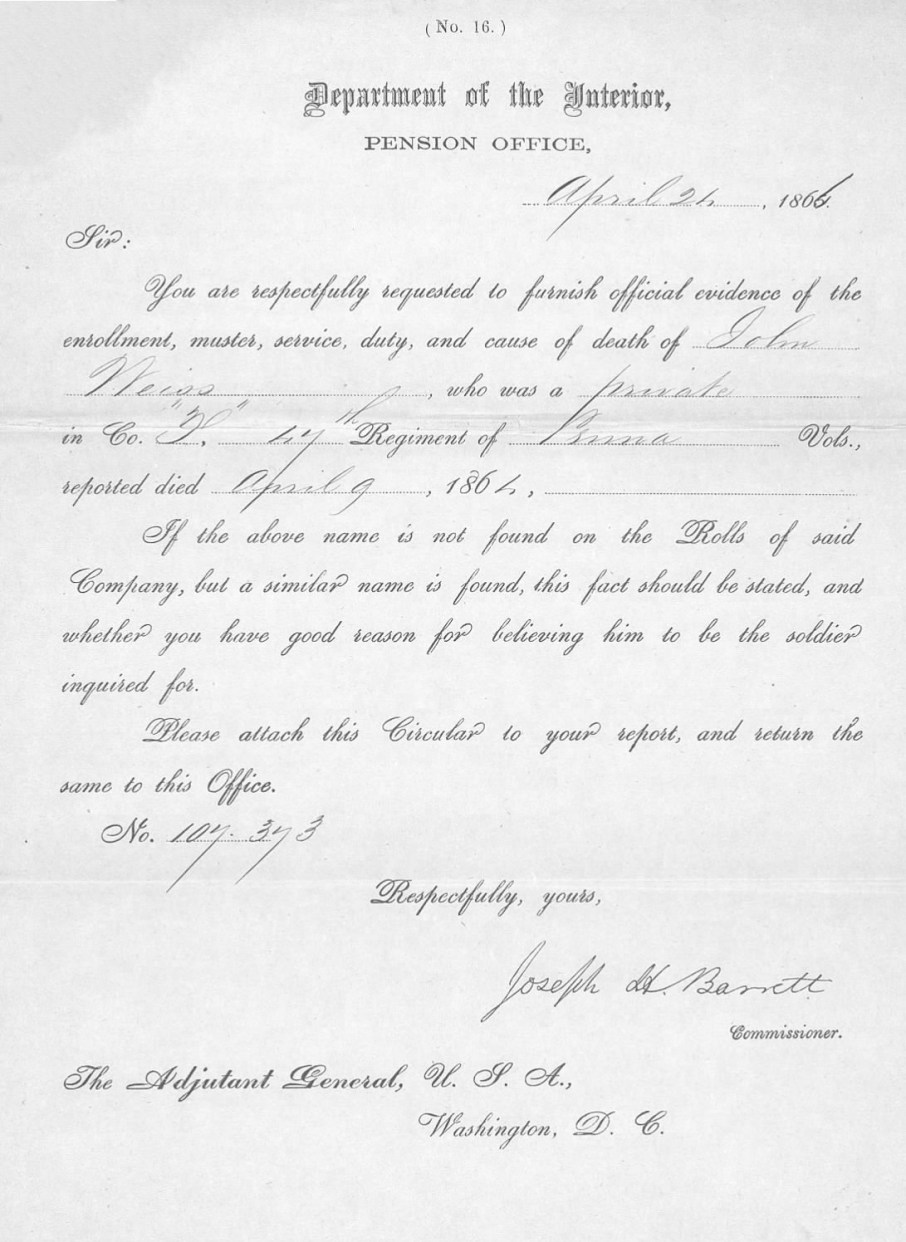 ( No. 16. )
Department of the Interior,
PENSION OFFICE,
April 24, 1866.
Sir:
You are respectfully requested to furnish official evidence of the
enrollment, muster, service, duty, and cause of death of John
Weiss, who was a private
in Co. "F", 47th Regiment of Penna Vols.,
reported died April 9, 1864,
If the above name is not found on the Rolls of said
Company, but a similar name is found, this fact should be stated, and
whether you have good reason for believing him to be the soldier
inquired for.
Please attach this Circular to your report, and return the
same to this Office.
No. 107.373
Respectfully, yours,
Joseph H. Barrett
Commissioner.
The Adjutant General, U. S. A.,
Washington, D. C.